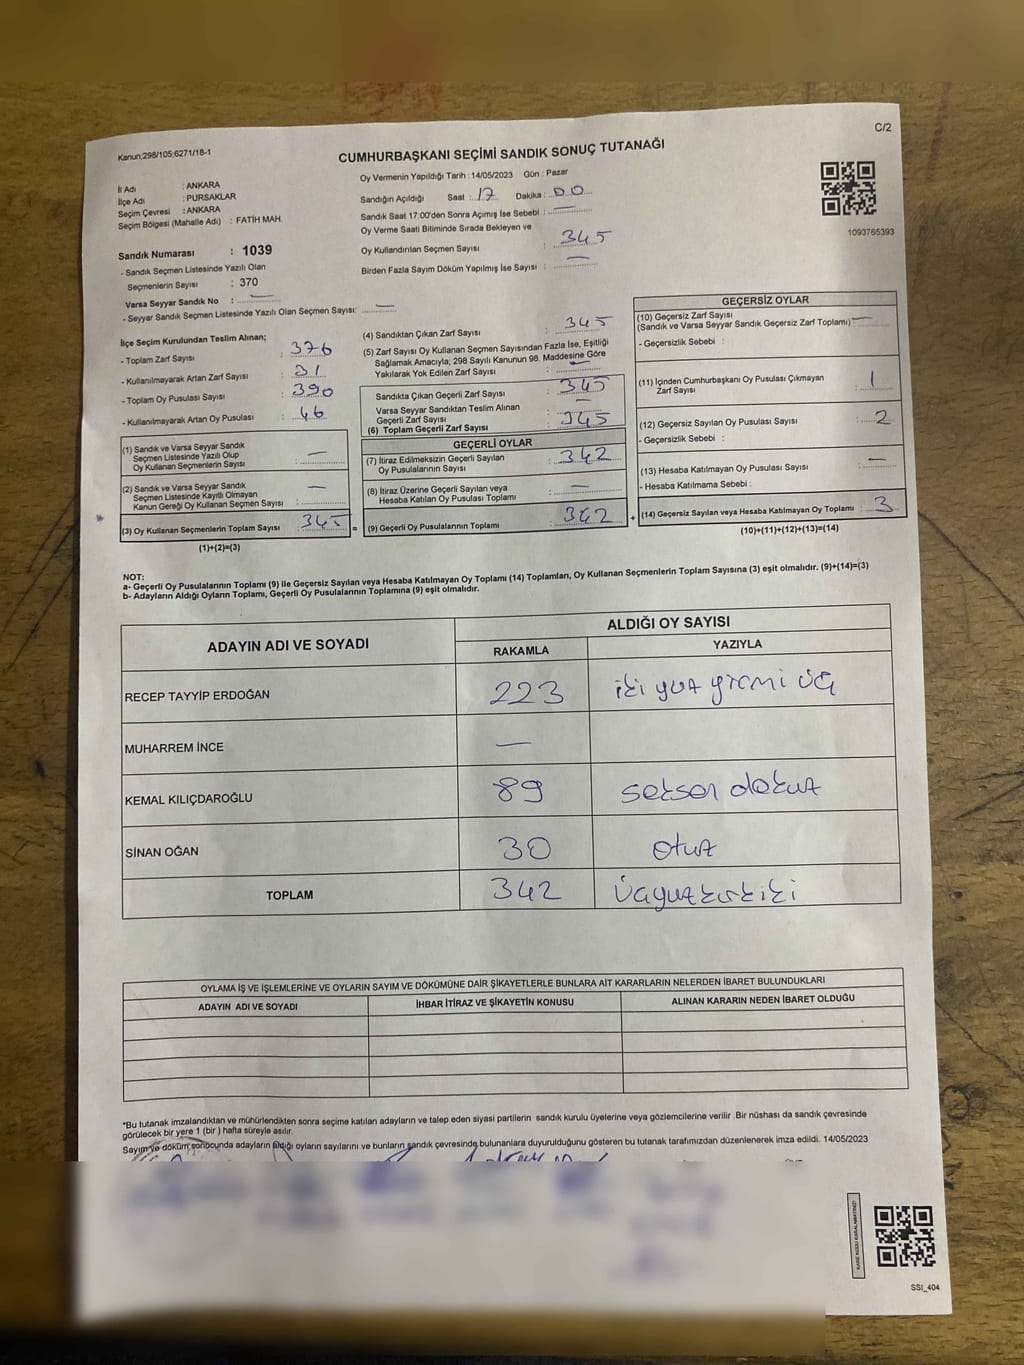 C/2
Kanun;298/105;6271/18-1
CUMHURBAŞKANI SEÇİMİ SANDIK SONUÇ TUTANAĞI
İl Adı : ANKARA
İlçe Adı : PURSAKLAR
Seçim Çevresi : ANKARA
Seçim Bölgesi (Mahalle Adı) : FATİH MAH.
Oy Vermenin Yapıldığı Tarih : 14/05/2023 Gün : Pazar
Sandığın Açıldığı Saat : 17 Dakika : 00
Sandık Saat 17:00'den Sonra Açımış İse Sebebi : —
Oy Verme Saati Bitiminde Sırada Bekleyen ve
Oy Kullandırılan Seçmen Sayısı : 345
Birden Fazla Sayım Döküm Yapılmış İse Sayısı : —
1093765393
Sandık Numarası : 1039
- Sandık Seçmen Listesinde Yazılı Olan
Seçmenlerin Sayısı : 370
Varsa Seyyar Sandık No : —
- Seyyar Sandık Seçmen Listesinde Yazılı Olan Seçmen Sayısı: —
İlçe Seçim Kurulundan Teslim Alınan;
- Toplam Zarf Sayısı : 376
- Kullanılmayarak Artan Zarf Sayısı : 31
- Toplam Oy Pusulası Sayısı : 390
- Kullanılmayarak Artan Oy Pusulası : 46
(1) Sandık ve Varsa Seyyar Sandık
Seçmen Listesinde Yazılı Olup
Oy Kullanan Seçmenlerin Sayısı : —
(2) Sandık ve Varsa Seyyar Sandık
Seçmen Listesinde Kayıtlı Olmayan
Kanun Gereği Oy Kullanan Seçmen Sayısı : —
(3) Oy Kullanan Seçmenlerin Toplam Sayısı : 345 =
(1)+(2)=(3)
(4) Sandıktan Çıkan Zarf Sayısı : 345
(5) Zarf Sayısı Oy Kullanan Seçmen Sayısından Fazla İse, Eşitliği
Sağlamak Amacıyla, 298 Sayılı Kanunun 98. Maddesine Göre
Yakılarak Yok Edilen Zarf Sayısı : —
Sandıkta Çıkan Geçerli Zarf Sayısı : 345
Varsa Seyyar Sandıktan Teslim Alınan
Geçerli Zarf Sayısı : —
(6) Toplam Geçerli Zarf Sayısı : 345
GEÇERLİ OYLAR
(7) İtiraz Edilmeksizin Geçerli Sayılan
Oy Pusulalarının Sayısı : 342
(8) İtiraz Üzerine Geçerli Sayılan veya
Hesaba Katılan Oy Pusulası Toplamı : —
(9) Geçerli Oy Pusulalarının Toplamı : 342 +
GEÇERSİZ OYLAR
(10) Geçersiz Zarf Sayısı
(Sandık ve Varsa Seyyar Sandık Geçersiz Zarf Toplamı) : —
- Geçersizlik Sebebi :
(11) İçinden Cumhurbaşkanı Oy Pusulası Çıkmayan
Zarf Sayısı : 1
(12) Geçersiz Sayılan Oy Pusulası Sayısı : 2
- Geçersizlik Sebebi :
(13) Hesaba Katılmayan Oy Pusulası Sayısı : —
- Hesaba Katılmama Sebebi :
(14) Geçersiz Sayılan veya Hesaba Katılmayan Oy Toplamı : 3
(10)+(11)+(12)+(13)=(14)
NOT:
a- Geçerli Oy Pusulalarının Toplamı (9) ile Geçersiz Sayılan veya Hesaba Katılmayan Oy Toplamı (14) Toplamları, Oy Kullanan Seçmenlerin Toplam Sayısına (3) eşit olmalıdır. (9)+(14)=(3)
b- Adayların Aldığı Oyların Toplamı, Geçerli Oy Pusulalarının Toplamına (9) eşit olmalıdır.
ADAYIN ADI VE SOYADI
ALDIĞI OY SAYISI
RAKAMLA YAZIYLA
RECEP TAYYİP ERDOĞAN 223 iki yüz yirmi üç
MUHARREM İNCE —
KEMAL KILIÇDAROĞLU 89 seksen dokuz
SİNAN OĞAN 30 otuz
TOPLAM 342 Üçyüzkırkiki
OYLAMA İŞ VE İŞLEMLERİNE VE OYLARIN SAYIM VE DÖKÜMÜNE DAİR ŞİKAYETLERLE BUNLARA AİT KARARLARIN NELERDEN İBARET BULUNDUKLARI
ADAYIN ADI VE SOYADI İHBAR İTİRAZ VE ŞİKAYETİN KONUSU ALINAN KARARIN NEDEN İBARET OLDUĞU
*Bu tutanak imzalandıktan ve mühürlendikten sonra seçime katılan adayların ve talep eden siyasi partilerin sandık kurulu üyelerine veya gözlemcilerine verilir .Bir nüshası da sandık çevresinde
görülecek bir yere 1 (bir ) hafta süreyle asılır.
Sayım ve döküm sonucunda adayların aldığı oyların sayılarını ve bunların sandık çevresinde bulunanlara duyurulduğunu gösteren bu tutanak tarafımızdan düzenlenerek imza edildi. 14/05/2023
KARE KODU KARALAMAYINIZ!
SSI_404